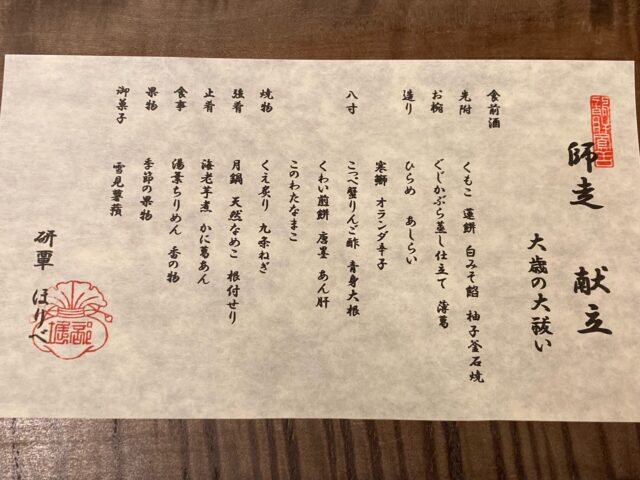 師走 献立
大歳の大祓い
食前酒
先附 くもこ 蓮餅 白みそ餡 柚子釜石焼
お椀 ぐじかぶら蒸し仕立て 薄葛
造り ひらめ あしらい
寒鰤 オランダ辛子
八寸 こっぺ蟹りんご酢 青身大根
くわい煎餅 唐墨 あん肝
このわたなまこ
焼物 くえ炙り 九条ねぎ
強肴 月鍋 天然なめこ 根付せり
止肴 海老芋煮 かに葛あん
食事 湯葉ちりめん 香の物
果物 季節の果物
御菓子 雪見薯蕷
研覃 ほりべ